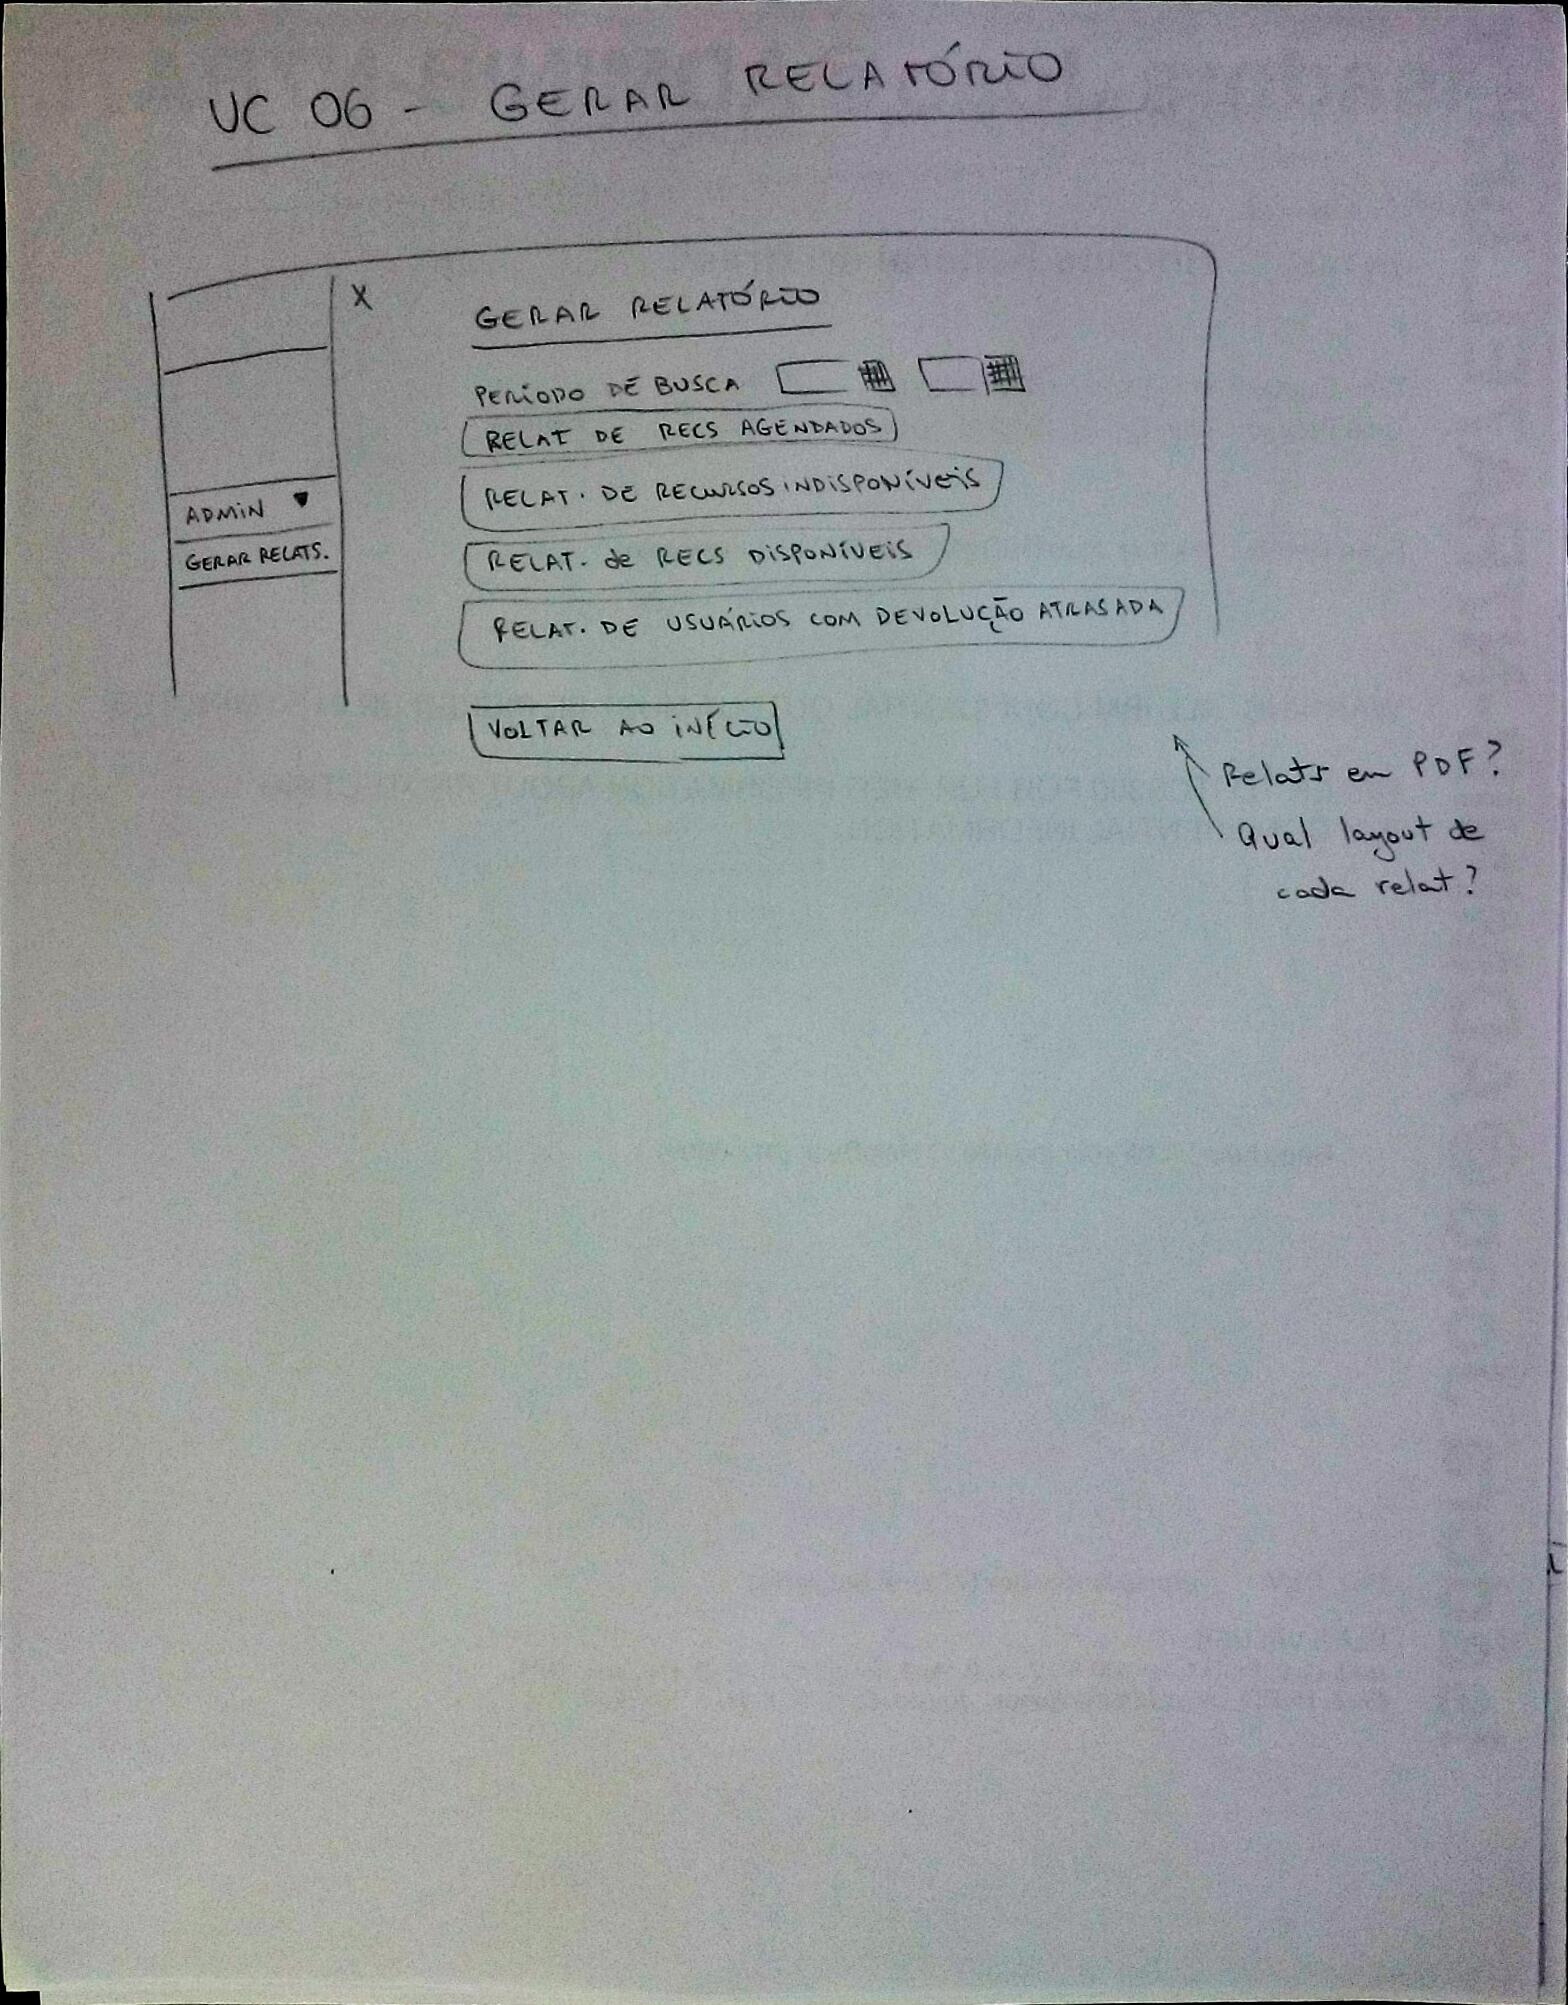 UC 06 - GERAR RELATÓRIO
X
GERAR RELATÓRIO
PERÍODO DE BUSCA
RELAT DE RECS AGENDADOS
RELAT. DE RECURSOS INDISPONÍVEIS
ADMIN
GERAR RELATS.
RELAT. de RECS DISPONÍVEIS
RELAT. DE USUÁRIOS COM DEVOLUÇÃO ATRASADA
VOLTAR AO INÍCIO
Relats em PDF?
Qual layout de
cada relat?